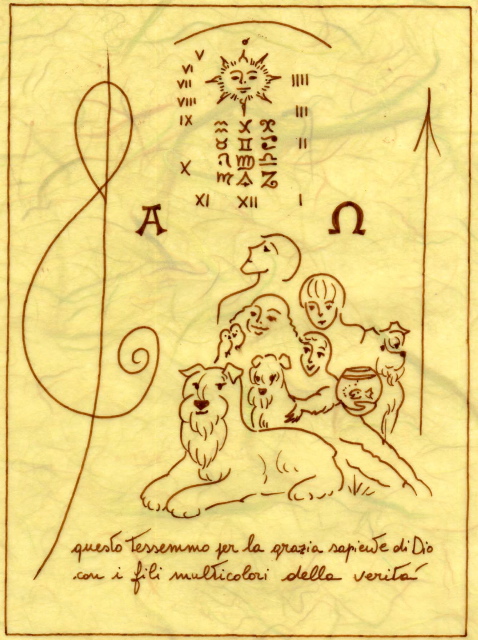 V
VI
VII IIII
VIII III
IX II
X
XI XII I
Α Ω
questo tessemmo per la grazia sapiente di Dio
con i fili multicolori della verità